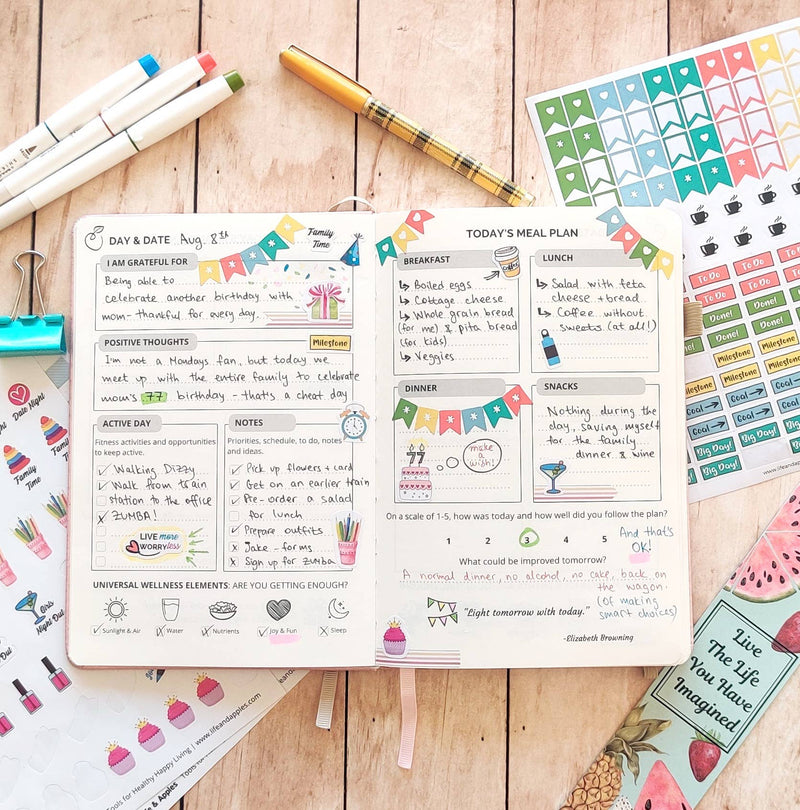 DAY & DATE Aug. 8th
Family
Time
I AM GRATEFUL FOR
Being able to
celebrate another birthday with
mom - thankful for every day.
POSITIVE THOUGHTS
Milestone
I'm not a Mondays fan, but today we
meet up with the entire family to celebrate
mom's 77 birthday - that's a cheat day
ACTIVE DAY
Fitness activities and opportunities
to keep active.
Walking Dizzy
Walk from train
Station to the office
ZUMBA!
LIVE more
WORRY less
NOTES
Priorities, schedule, to do, notes
and ideas.
Pick up flowers + card
Get on an earlier train
Pre-order a salad
for lunch
Prepare outfits
Jake - forms
Sign up for zumba
UNIVERSAL WELLNESS ELEMENTS: ARE YOU GETTING ENOUGH?
Sunlight & Air
Water
Nutrients
Joy & Fun
Sleep
TODAY'S MEAL PLAN
BREAKFAST
coffee
Boiled eggs
Cottage cheese
Whole grain bread
(for me) & pita bread
(for kids)
Veggies
LUNCH
Salad with feta
cheese + bread
Coffee without
sweets (at all!)
DINNER
77
make
a
wish!
SNACKS
Nothing during the
day, saving myself
for the family
dinner & wine
On a scale of 1-5, how was today and how well did you follow the plan?
1 2 3 4 5
And that's
OK!
What could be improved tomorrow?
A normal dinner, no alcohol, no cake, back on
the wagon
(of making
smart choices)
"Light tomorrow with today."
-Elizabeth Browning
Date Night
Family
Time
Family
Time
Girls
Night Out
Tools for Healthy Happy Living | www.lifeandapples.com
To Do
To Do
To Do
To Do
To Do
To Do
Done!
Done!
Done!
Done!
Milestone
Milestone
Milestone
Milestone
Goal
Goal
Goal
Goal
Big Day!
Big Day!
Big Day!
Big Day!
Live
The Life
You Have
Imagined